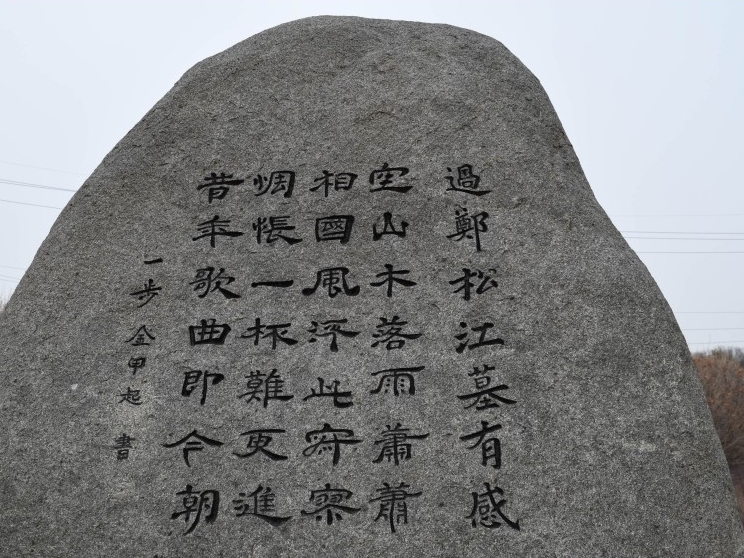 過鄭松江墓有感
空山木落雨蕭蕭
相國風流此寂寥
惆悵一杯難更進
昔年歌曲即今朝
一步 金甲起 書